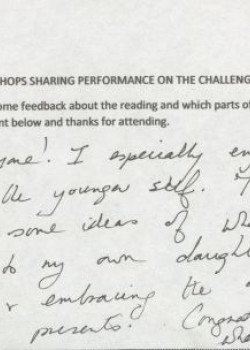 HOPS SHARING PERFORMANCE ON THE CHALLENG
ome feedback about the reading and which parts of
nt below and thanks for attending.
! I especially en
the younger self.
some ideas of wha
to my own daugh
embracing the
presents! Congrat